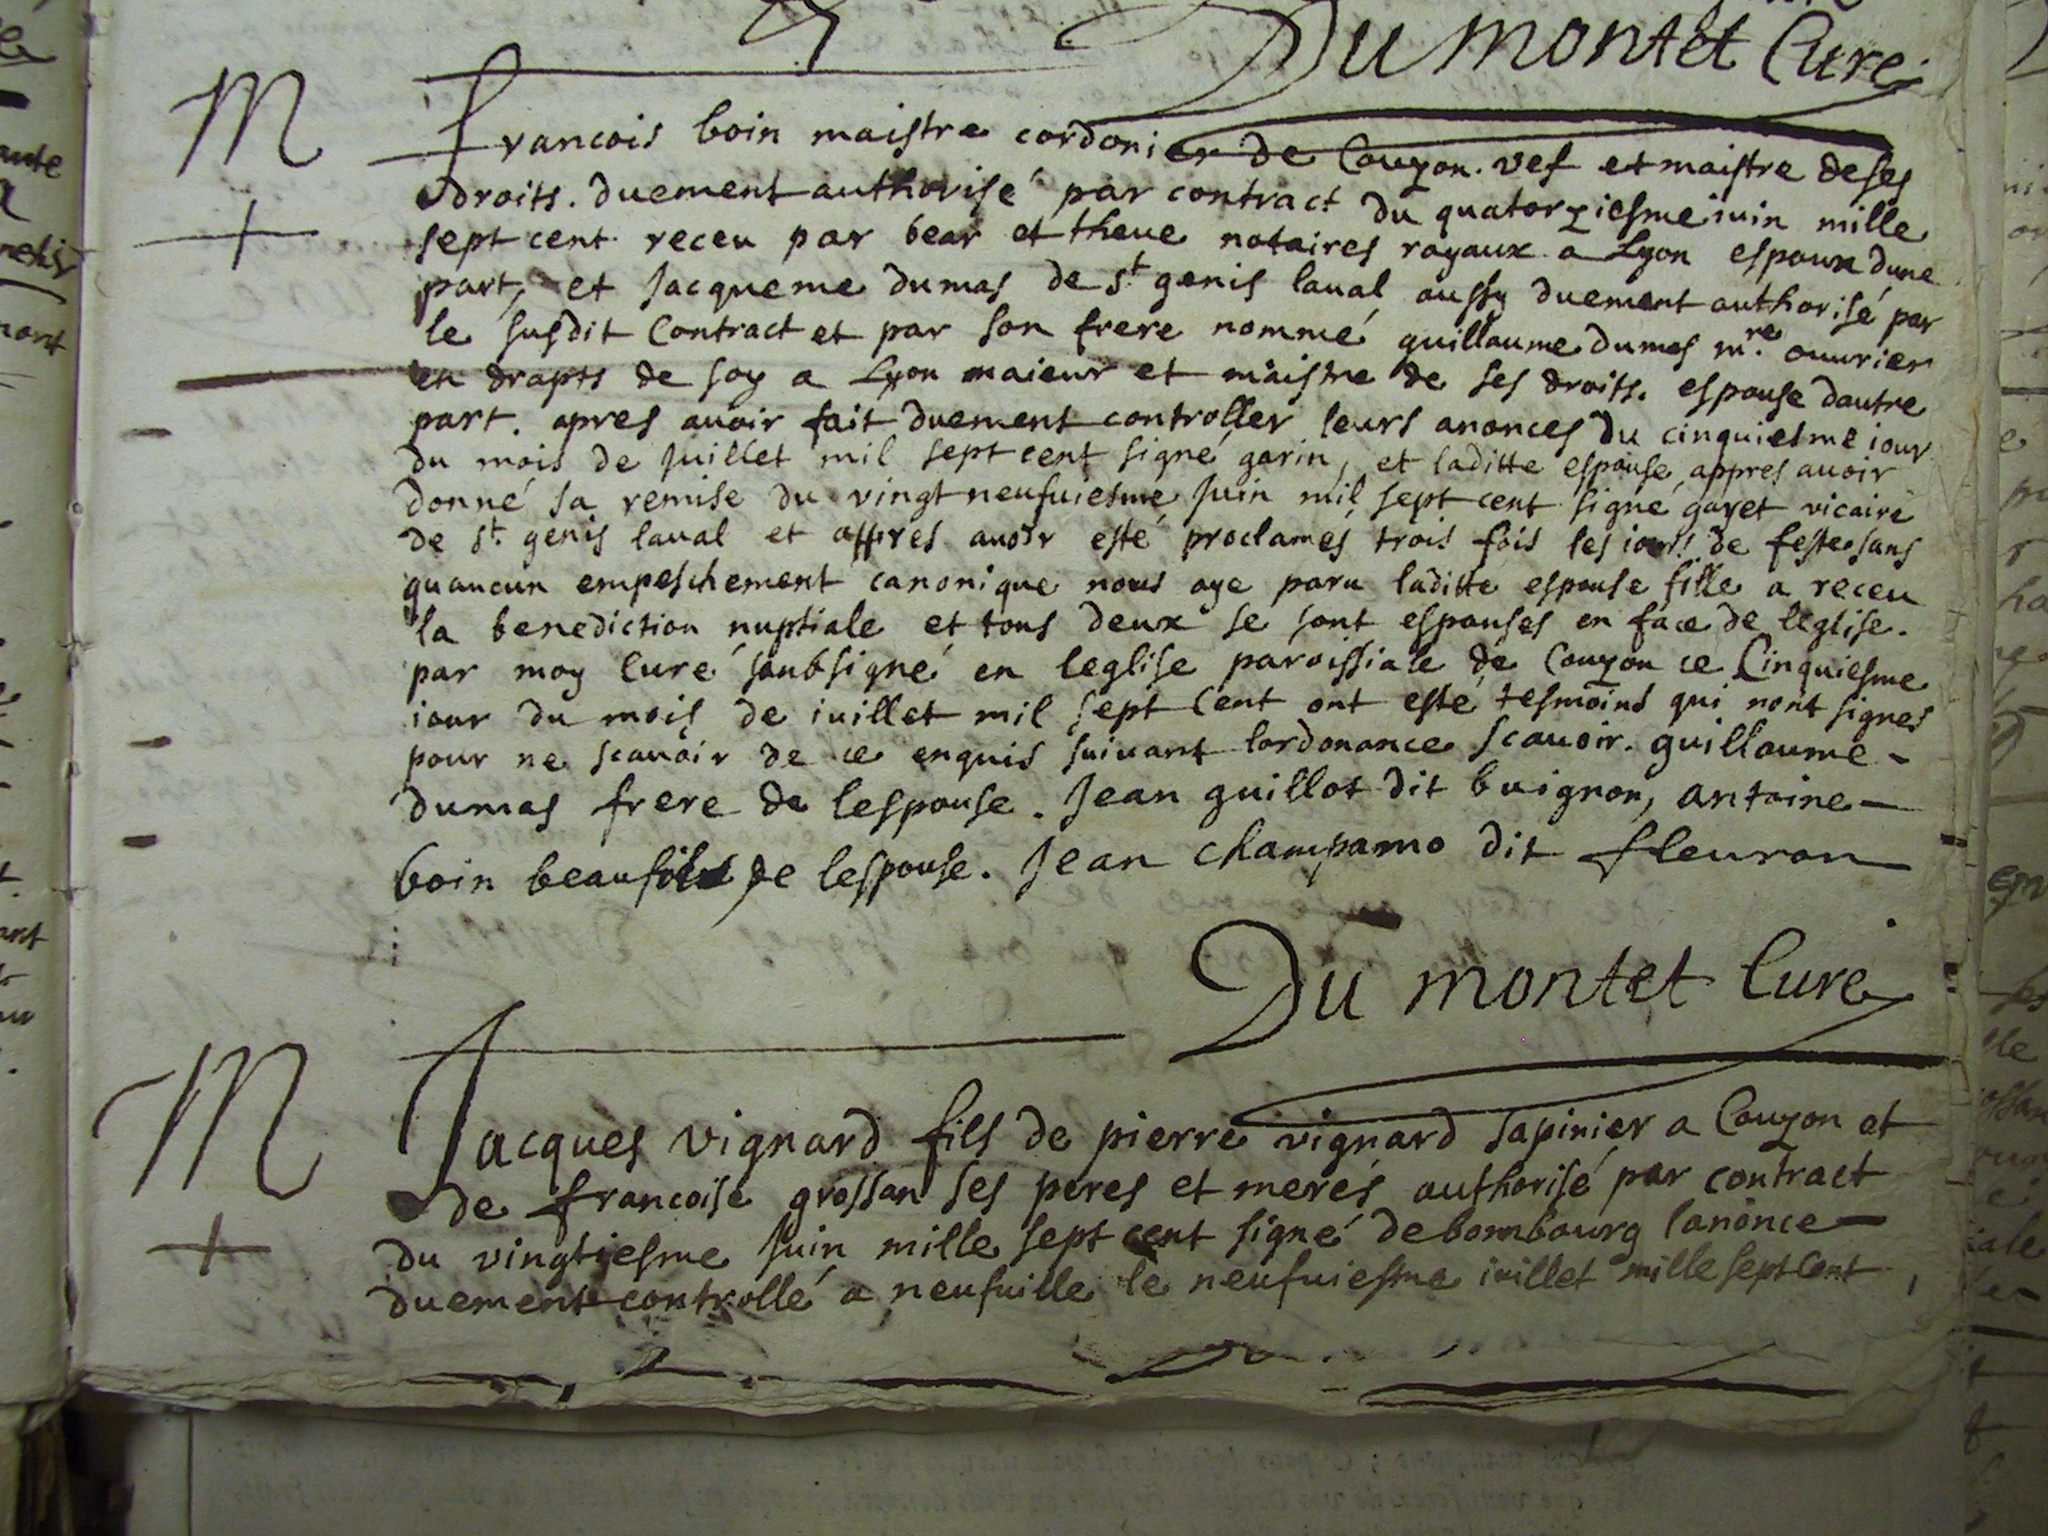 Du montet Curé
M
francois boin maistre cordonier de Couzon. vef et maistre de ses
droits. duement authorisé par contract du quatorziesme iuin mille
sept cent receu par bear et theve notaires royaux a Lyon espoux dune
part, et Jacqueme dumas de st genis laual aussy duement authorisé par
le susdit Contract et par son frere nommé guillaume dumas mre ouurier
en drapts de soy a Lyon maieur et maistre de ses droits. espouse dautre
part. apres auoir fait duement controller leurs anonces du cinquiesme iour
du mois de Juillet mil sept cent signé garin, et laditte espouse appres auoir
donné sa remise du vingt neufuiesme Juin mil sept cent signé gayet vicaire
de st. genis laual et appres auoir esté proclamés trois fois les iours de feste sans
quaucun empeschement canonique nous aye paru laditte espouse fille a receu
la benediction nuptiale et tous deux se sont espouses en face de leglise.
par moy Curé soubsigné en leglise paroissiale de Couzon ce Cinquiesme
iour du mois de iuillet mil sept Cent ont esté tesmoins qui nont signes
pour ne scauoir de ce enquis suiuant lordonance scauoir. guillaume
dumas frere de lespouse. Jean guillot dit buignon, antoine
boin beaufils de lespouse. Jean champamo dit fleuron
Du montet Curé
M
Jacques vignard fils de pierre vignard sapinier a Couzon et
de francoise grossan ses peres et meres authorisé par contract
du vingtiesme Juin mille sept cent signé debombourg lanonce
duement controllé a neufuille le neufuiesme iuillet mille sept Cent